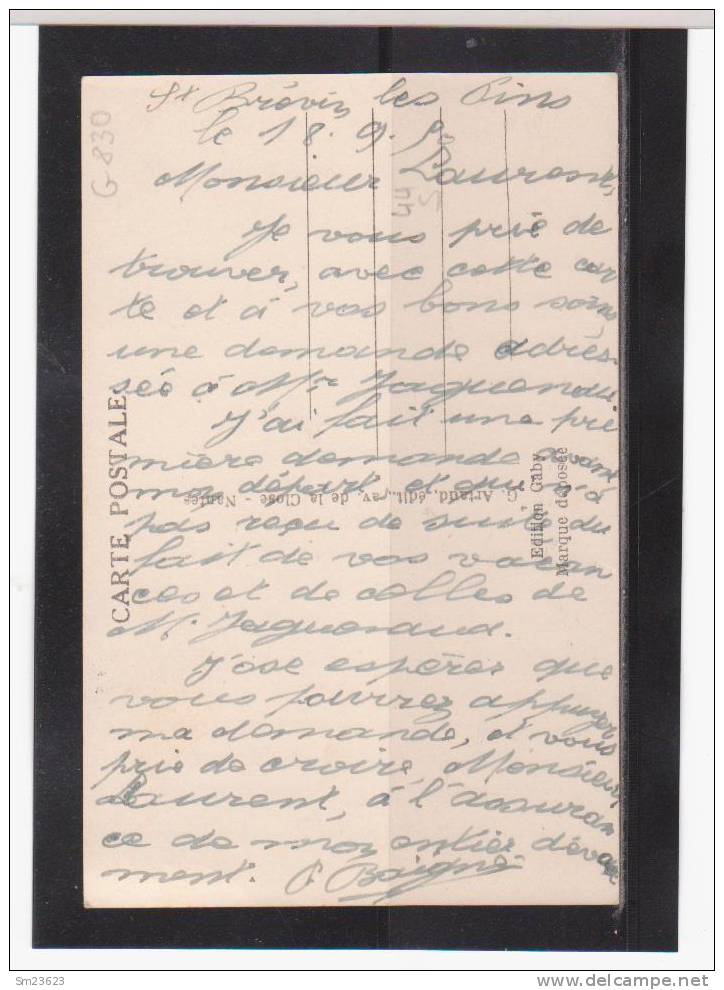 St Brévin les Pins
le 18. 9. 50
Monsieur Laurent,
Je vous prie de
trouver, avec cette car
te et à vos bons soins
une demande adres-
sée à Mr
J'ai fait une pre
mière demande avant
mon départ et qui n'a
pas reçu de suite du
fait de vos vacan
ces et de celles de
Mr
J'ose espérer que
vous pourrez appuyer
ma demande, et vous
prie de croire, Monsieur
Laurent, à l'assuran
ce de mon entier dévoue
ment.
G-830
44
S
CARTE POSTALE
G. Artaud, édit., av. de la Close - Nantes
Edition Gaby
Marque déposée
Sm23623
delcampe.net